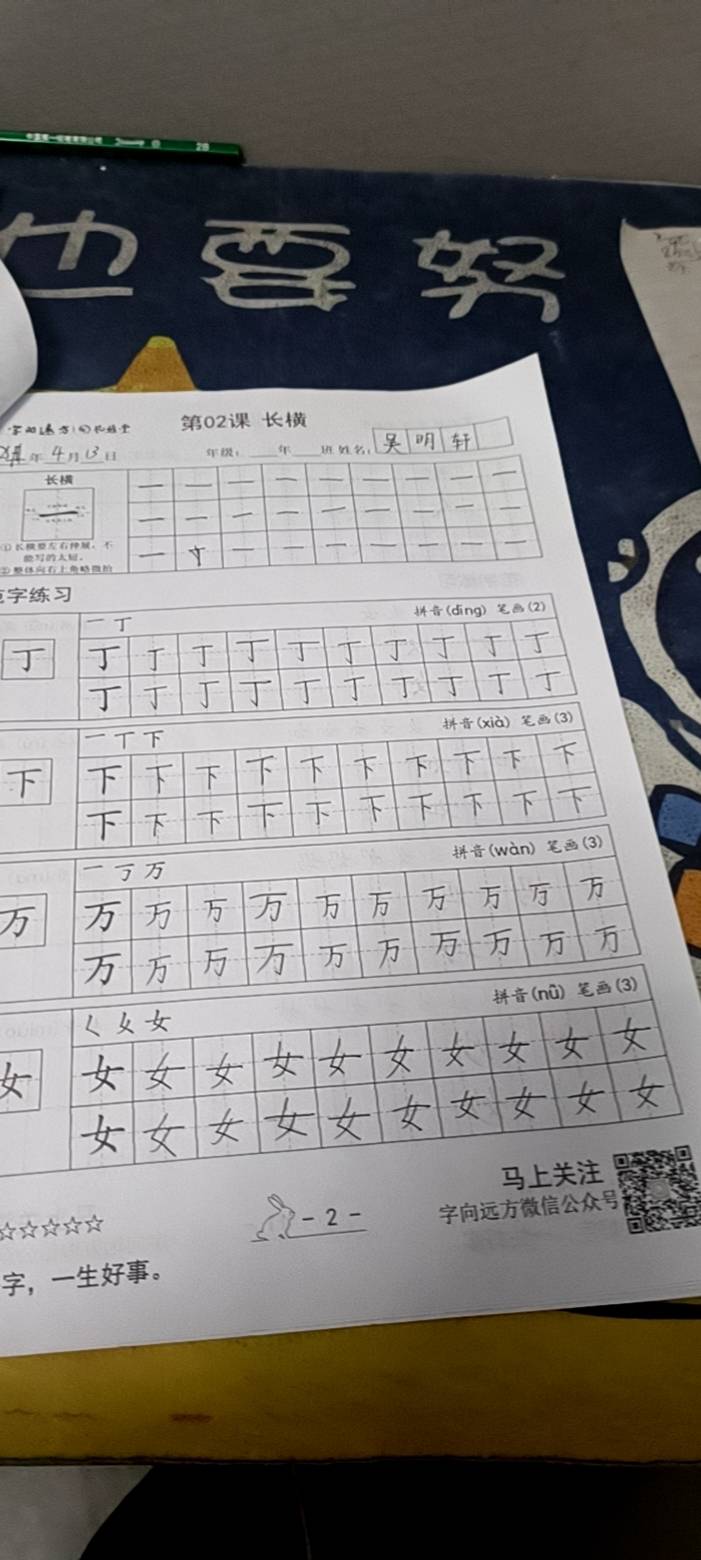 中国第一铅笔有限公司 2B
也要努
第02课 长横
年4月13日 年级：____年____班 姓名：吴明轩
长横
一 一 一 一 一 一 一 一 一
一 一 一 一 一 一 一 一 一
①长横要左右伸展，不能写的太短。
一 丁 一 一 一 一 一 一 一
②整体向右上角略微抬
范字练习
一 丁 拼音(dīng) 笔画(2)
丁 丁 丁 丁 丁 丁 丁 丁 丁 丁 丁
丁 丁 丁 丁 丁 丁 丁 丁 丁 丁
一 丅 下 拼音(xià) 笔画(3)
下 下 下 下 下 下 下 下 下 下 下
下 下 下 下 下 下 下 下 下 下
一 丂 万 拼音(wàn) 笔画(3)
万 万 万 万 万 万 万 万 万 万 万
万 万 万 万 万 万 万 万 万 万
𡿨 女 女 拼音(nǚ) 笔画(3)
女 女 女 女 女 女 女 女 女 女 女
女 女 女 女 女 女 女 女 女 女
马上关注
☆☆☆☆☆ - 2 - 字向远方微信公众号
字，一生好事。